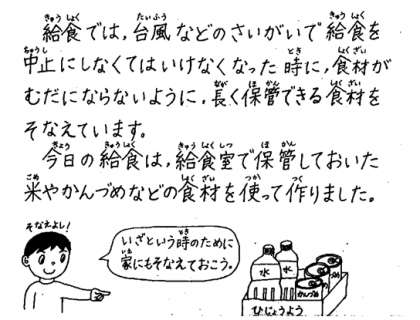 給食では,台風などのさいがいで給食を
中止にしなくてはいけなくなった時に,食材が
むだにならないように,長く保管できる食材を
そなえています。
今日の給食は,給食室で保管しておいた
米やかんづめなどの食材を使って作りました。
そなえよし!
いざという時のために
家にもそなえておこう。
水
水
かんづめ
ひじょうよう